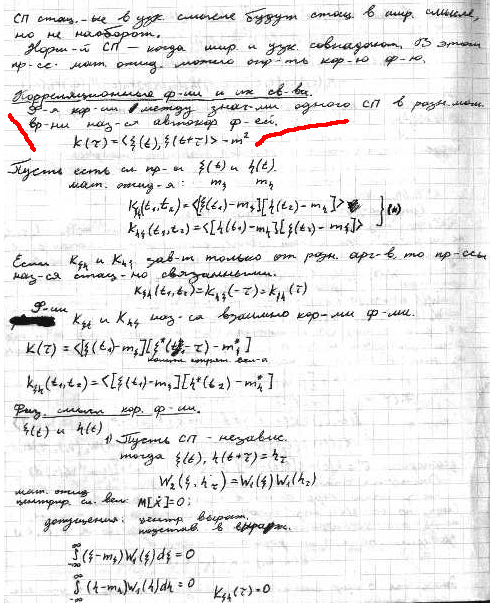 СП стац.-ые в узк. смысле будут стац. в шир. смысле,
но не наоборот.
Норм-й СП – когда шир. и узк. совпадают. В этом
пр-се мат. ожид. можно опр-ть кор-ю ф-ю.
Корреляционные ф-ии и их св-ва.
кор-ии между знач-ми одного СП в разн. мом.
вр-ни наз-ся автокор ф-ей.
K(τ) = <ξ(t), ξ(t+τ)> - m²
Пусть есть сл пр-ы ξ(t) и η(t).
мат. ожид-я: m_ξ m_η
K_ξη(t₁,t₂) = <[ξ(t₁)-m_ξ][η(t₂)-m_η]>
K_ηξ(t₁,t₂) = <[η(t₁)-m_η][ξ(t₂)-m_ξ]> } (*)
Если K_ξη и K_ηξ зав-т только от разн. арг-в, то пр-ссы
наз-ся стац-но связанными.
K_ξη(t₁,t₂) = K_ηξ(-τ) = K_ξη(τ)
Ф-ии
K_ξη и K_ηξ наз-ся взаимно кор-ми ф-ми.
K(τ) = <[ξ(t₁)-m_ξ][ξ*(t₁-τ)-m*_ξ]
K_ξη(t₁,t₂) = <[ξ(t₁)-m_ξ][η*(t₂)-m*_η]
Физ. смысл кор. ф-ии.
ξ(t) и η(t)
1) Пусть СП - независ.
тогда ξ(t), η(t+τ) = η_τ
W₂(ξ, η_τ) = W₁(ξ)W₁(η_τ)
мат. ожид
центрир. сл. вел: M[Ẋ]=0;
допущения: центр выраж.
подстав. в выраж.
∫(ξ-m_ξ)W₁(ξ)dξ = 0
∫(η-m_η)W₁(η)dη = 0 K_ξη(τ)=0